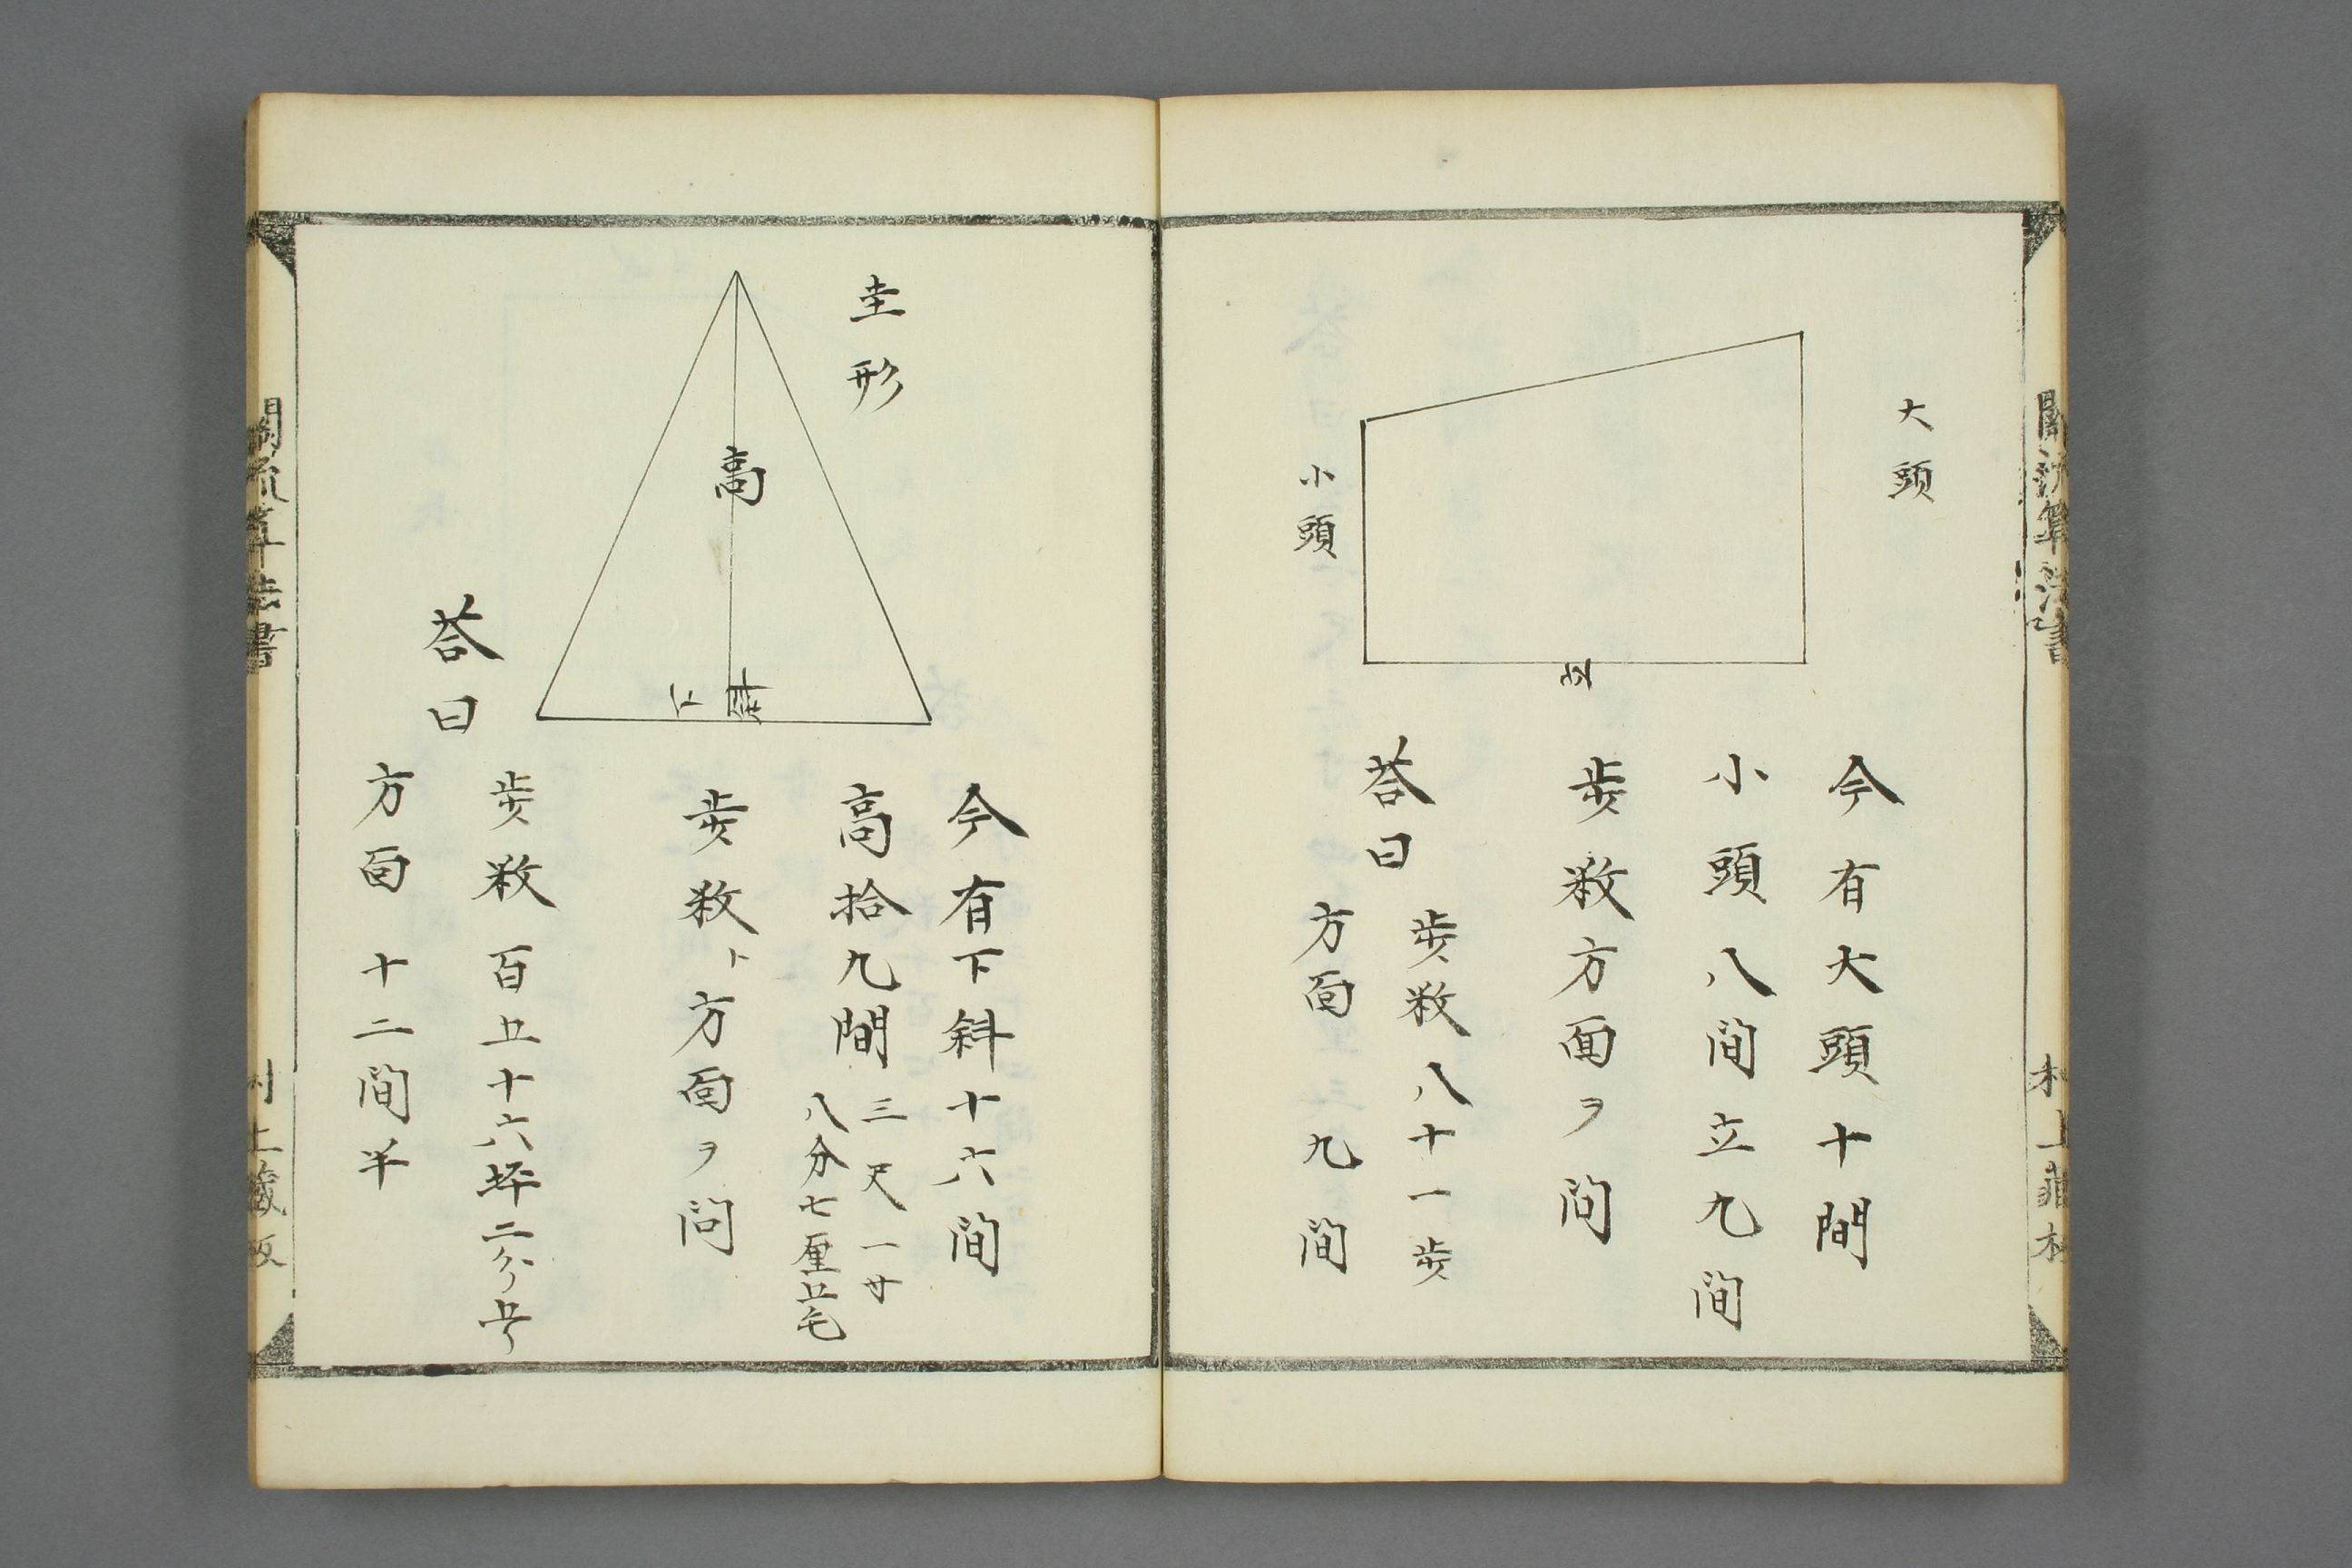 大頭
小頭
立
今有大頭十間
小頭八間立九間
歩数方面ヲ問
答曰
歩数八十一歩
方面九間
圭形
高
下斜
今有下斜十六間
高拾九間三尺一寸
八分七厘五毛
歩数ト方面ヲ問
答曰
歩数百五十六坪二分五厘
方面十二間半
關流算法書
村上蔵板